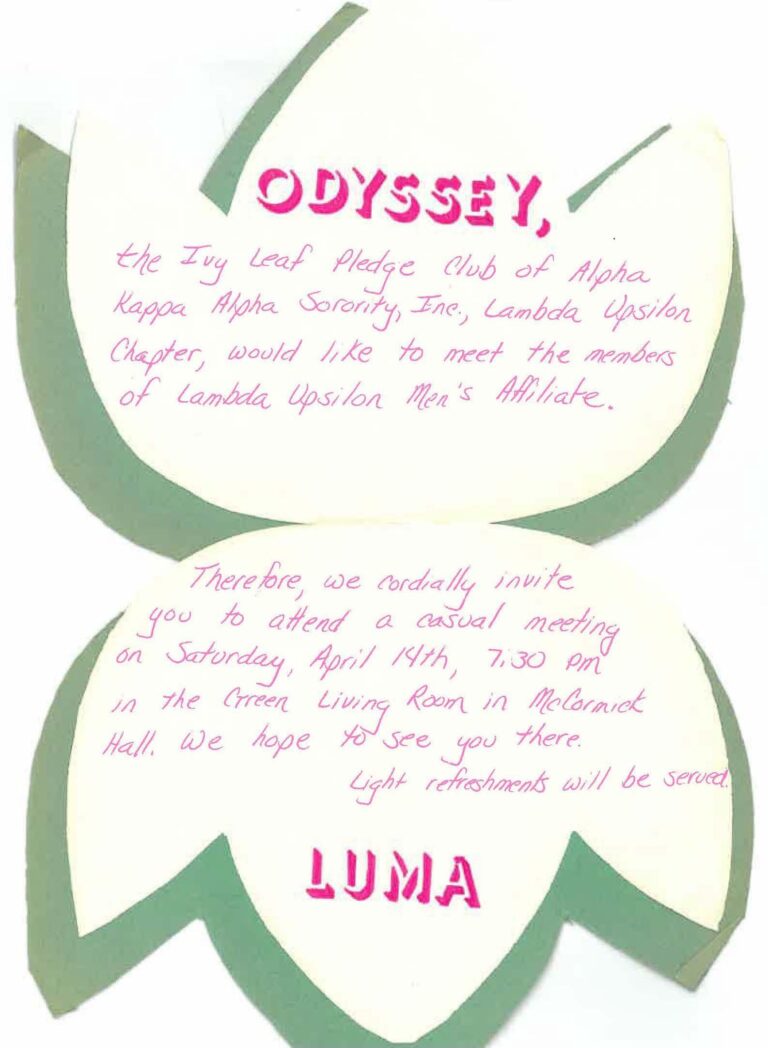 ODYSSEY,
the Ivy Leaf Pledge Club of Alpha
Kappa Alpha Sorority, Inc., Lambda Upsilon
Chapter, would like to meet the members
of Lambda Upsilon Men's Affiliate.
Therefore, we cordially invite
you to attend a casual meeting
on Saturday, April 14th, 7:30 pm
in the Green Living Room in McCormick
Hall. We hope to see you there.
Light refreshments will be served.
LUMA